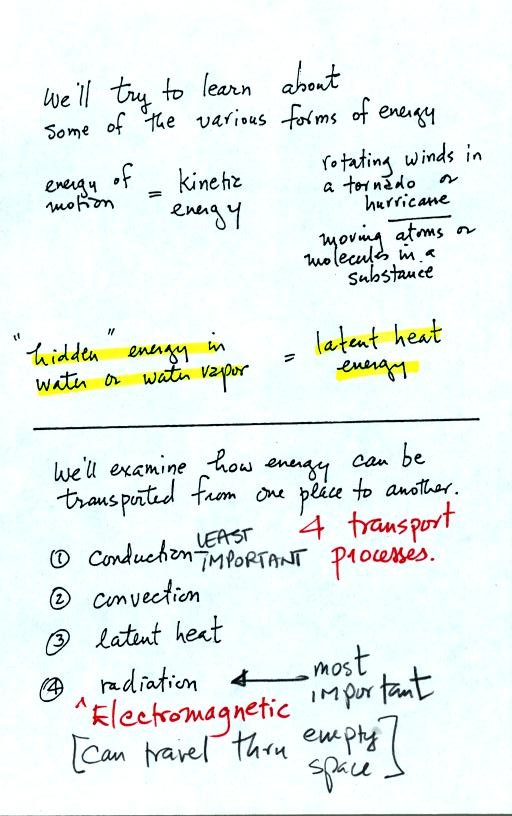 We'll try to learn about
some of the various forms of energy
energy of
motion
= kinetic
energy
rotating winds in
a tornado or
hurricane
moving atoms or
molecules in a
substance
"hidden" energy in
water or water vapor
= latent heat
energy
We'll examine how energy can be
transported from one place to another.
4 transport
processes.
① conduction – LEAST
IMPORTANT
② convection
③ latent heat
④ radiation ← most
important
^ Electromagnetic
[can travel thru empty
space]